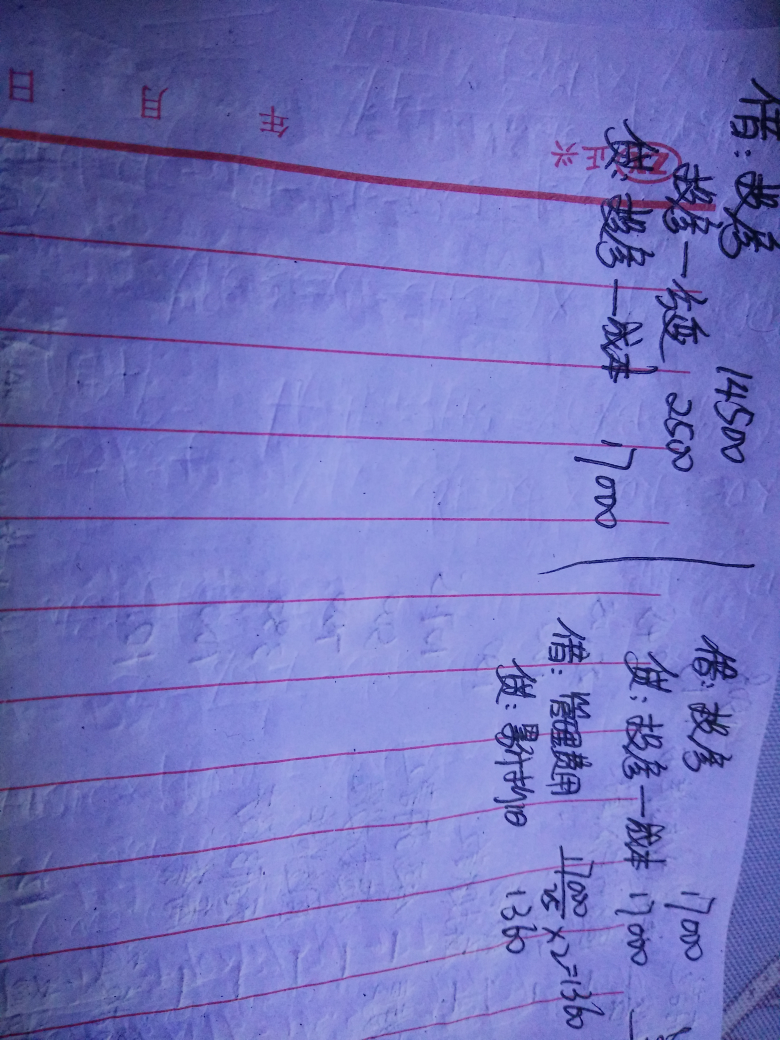 借：投房 14500
投房一公变 2500
贷：投房一成本 17000
借：投房 17000
贷：投房一成本 17000
借：管理费用 17000/25×2=1360
贷：累计折旧 1360
正兴
年 月 日